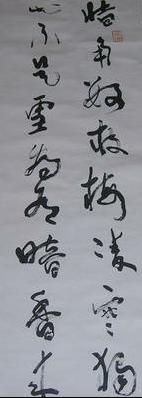 墙角數枝梅凌寒獨
不是雪為有暗香來